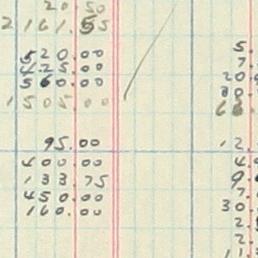 20 50
2161.55
520.00
425.00
560.00
1505 00
95.00
400.00
133.75
450.00
160.00
5.
7.
20.
12.
4.
9.
7.
30.
2.
2.
11.